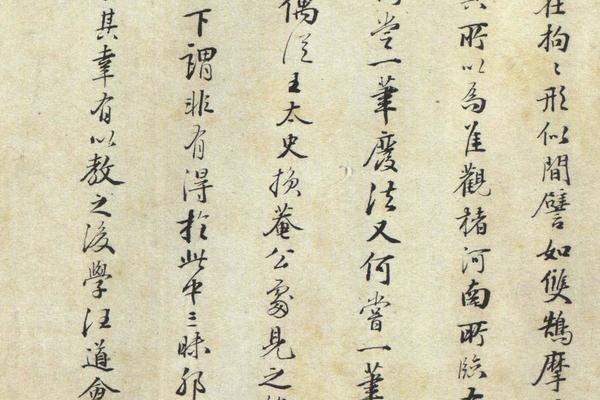 在拘〻形似間譬如雙鵠摩
所以為佳觀褚河南所臨
嘗一筆廢法又何嘗一筆
偶從王太史損菴公處見之
下謂非有得於此中三昧那
其幸有以教之後學汪道會